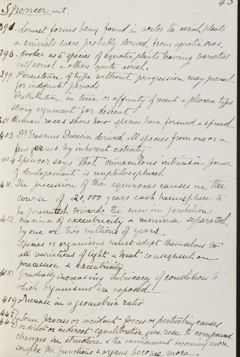 43
Spencer cont.
394. Lowest forms being found in water so aerial plants
& animals were probably derived from aquatic ones.
396. Hooker as to species of aquatic plants having varieties
half aerial & other quite aerial.
399. Persistence of type without progression may prevail
for indefinite periods
Distribution in time or affinity of recent & pliocene types
strong argument for descent.
401. Human races show how species have formed & spread.
403. Dr Erasmus Darwin derived all species from one or a
few forms by inherent activity
404. Spencer says that miraculous intrinsic power
of development is unphilosophical.
411. The precession of the equinoxes causes in the
course of 21,000 years each hemisphere to
be presented towards the sun in perihelion
412. maxima of excentricity & minima separated
by one or two millions of years.
Species or organisms must adapt themselves to
all variations of light & heat consequent on
precession & excentricity
418. Gradually increasing intricacy of conditions to
which organisms are exposed
419. Increase in a geometric ratio
442. process or incident force or
443. or indirect equilibration give rise to compound
changes in structure, & the environment becoming more
complex the functions & organs become more